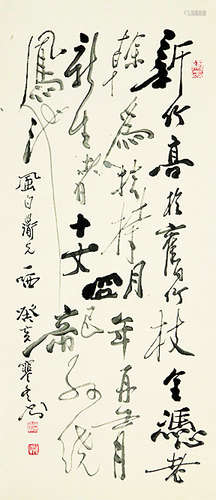 新竹高於舊竹枝全憑老
榦為扶持明年再有
新生者十丈龍孫繞
鳳池
風白 兄一哂 癸亥